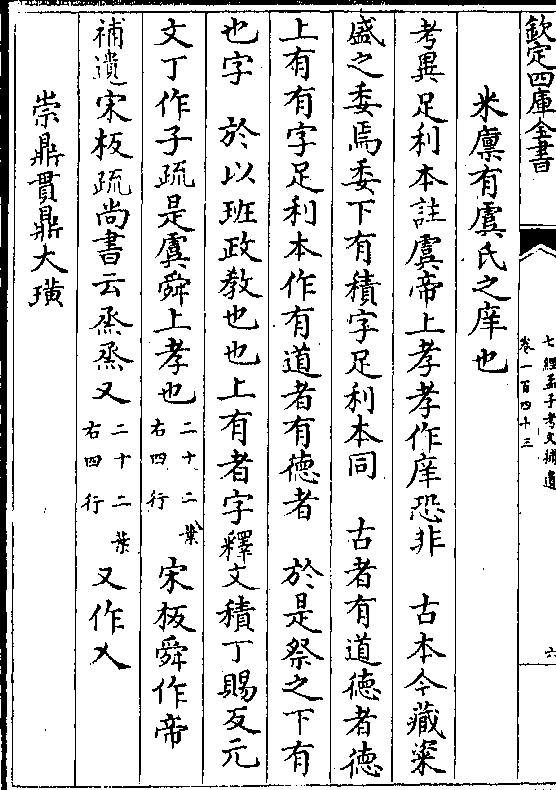 欽定四庫全書
七經孟子考文補遺
卷一百四十三
六
米廩有虞氏之庠也
考異足利本註虞帝上孝孝作庠恐非　古本今藏粢
盛之委焉委下有積字足利本同　古者有道德者德
上有有字足利本作有道者有德者　於是祭之下有
也字　於以班政教也也上有者字釋文積丁賜反元
文丁作子疏是虞舜上孝也二十二葉右四行　宋板舜作帝
補遺宋板疏尚書云烝烝又二十二葉右四行又作乂
崇鼎貫鼎大璜